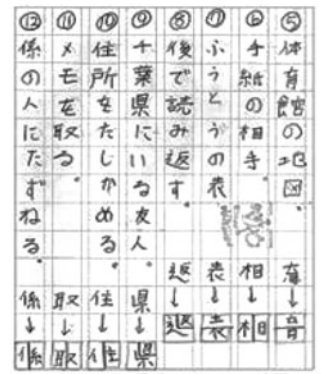 ⑤体育館の地図 育→育
⑥手紙の相手。 相→相
⑦ふうとうの表 表→表
⑧後で読み返す。 返→返
⑨千葉県にいる友人。 県→県
⑩住所をたしかめる。 住→住
⑪メモを取る。 取→取
⑫係の人にたずねる。 係→係